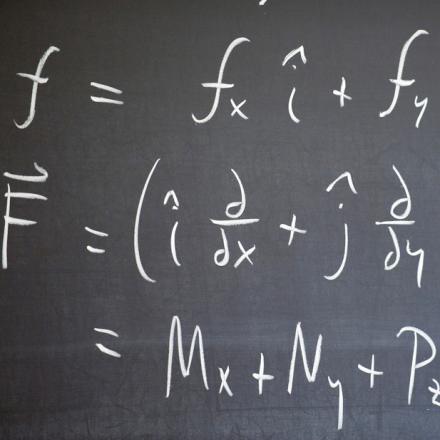 f = fₓ î + f_y
F⃗ = (î ∂/∂x + ĵ ∂/∂y
= Mₓ + N_y + P_z